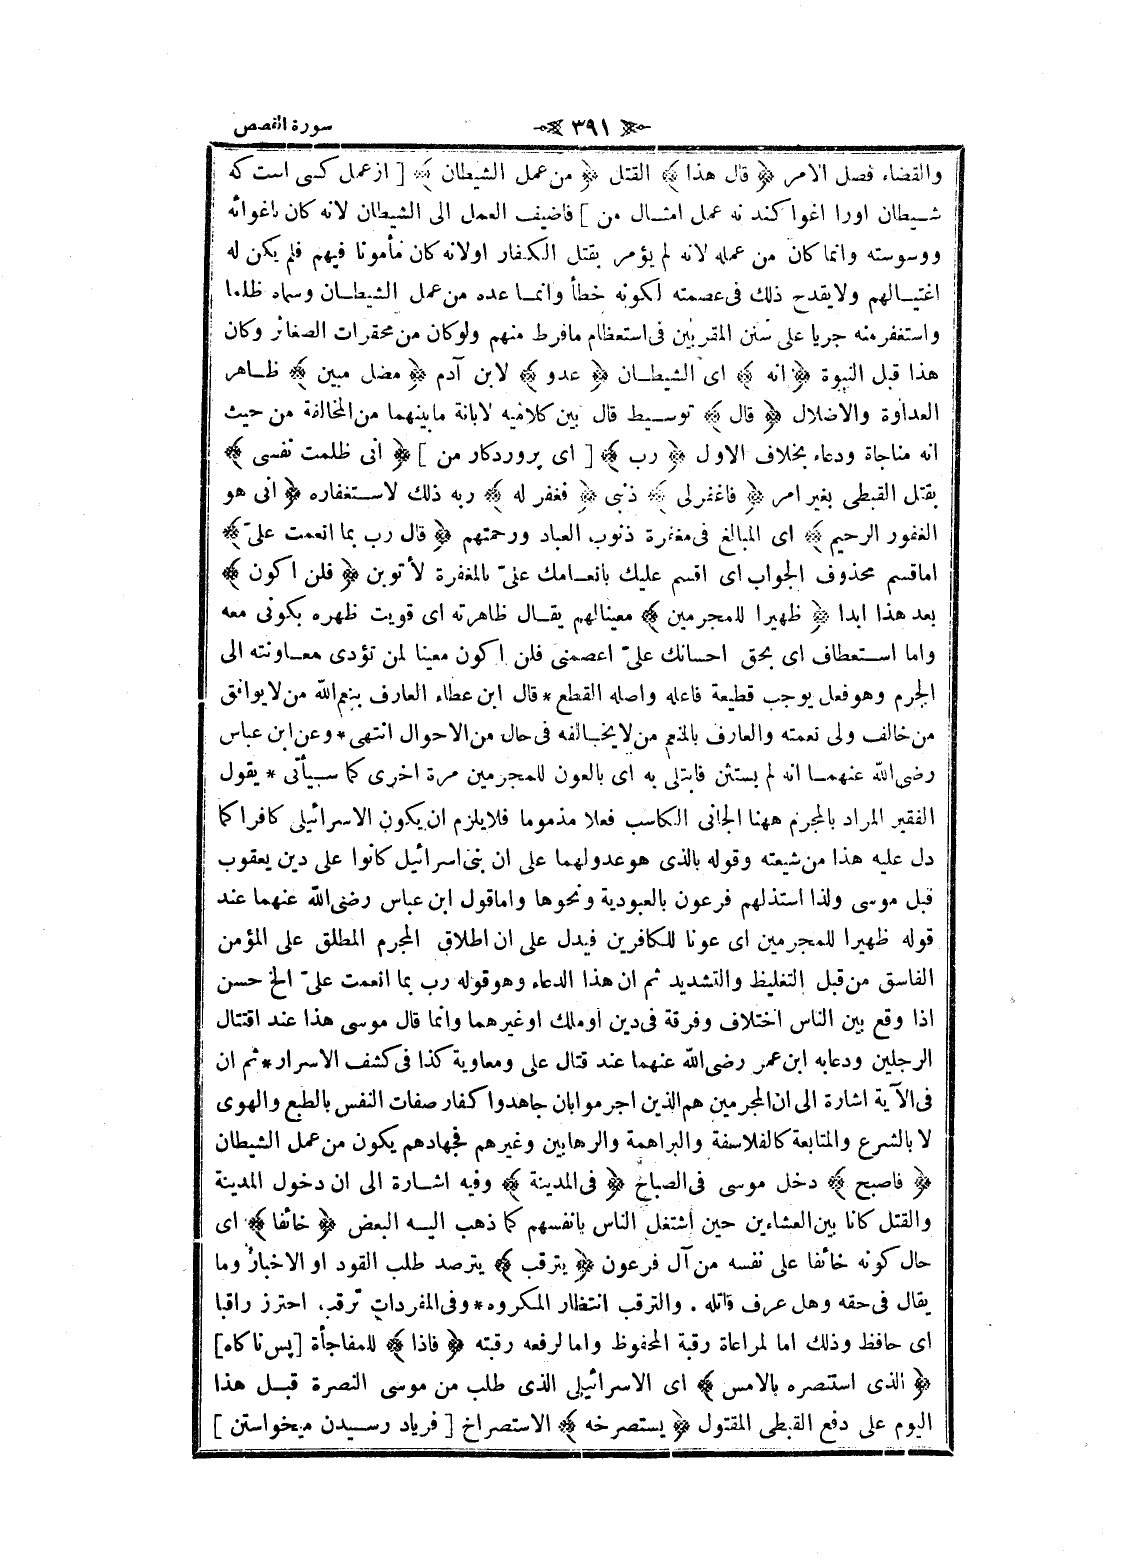 سورة القصص ﴿ ٣٩١ ﴾
والقضاء فصل الامر ﴿ قال هذا ﴾ القتل ﴿ من عمل الشيطان ﴾ [ از عمل كسى است كه
شيطان اورا اغوا كند نه عمل امثال من ] فاضيف العمل الى الشيطان لانه كان باغوائه
ووسوسته وانما كان من عمله لانه لم يؤمر بقتل الكفار اولانه كان مأمونا فيهم فلم يكن له
اغتيالهم ولايقدح ذلك فى عصمته لكونه خطأ وانما عده من عمل الشيطان وسماه ظلما
واستغفر منه جريا على سنن المقربين فى استعظام مافرط منهم ولوكان من محقرات الصغائر وكان
هذا قبل النبوة ﴿ انه ﴾ اى الشيطان ﴿ عدو ﴾ لابن آدم ﴿ مضل مبين ﴾ ظاهر
العداوة والاضلال ﴿ قال ﴾ توسيط قال بين كلاميه لابانة مابينهما من المخالفة من حيث
انه مناجاة ودعاء بخلاف الاول ﴿ رب ﴾ [ اى پروردكار من ] ﴿ انى ظلمت نفسى ﴾
بقتل القبطى بغير امر ﴿ فاغفرلى ﴾ ذنبى ﴿ فغفر له ﴾ ربه ذلك لاستغفاره ﴿ انى هو
الغفور الرحيم ﴾ اى المبالغ فى مغفرة ذنوب العباد ورحمتهم ﴿ قال رب بما انعمت علىّ ﴾
اماقسم محذوف الجواب اى اقسم عليك بانعامك علىّ بالمغفرة لأتوبن ﴿ فلن اكون ﴾
بعد هذا ابدا ﴿ ظهيرا للمجرمين ﴾ معينالهم يقال ظاهرته اى قويت ظهره بكونى معه
واما استعطاف اى بحق احسانك علىّ اعصمنى فلن اكون معينا لمن تؤدى معاونته الى
الجرم وهوفعل يوجب قطيعة فاعله واصله القطع * قال ابن عطاء العارف بنعم الله من لايوافق
من خالف ولى نعمته والعارف بالمنعم من لايخالفه فى حال من الاحوال انتهى * وعن ابن عباس
رضى الله عنهما انه لم يستثن فابتلى به اى بالعون للمجرمين مرة اخرى كما سيأتى * يقول
الفقير المراد بالمجرم ههنا الجانى الكاسب فعلا مذموما فلايلزم ان يكون الاسرائيلى كافرا كما
دل عليه هذا من شيعته وقوله بالذى هو عدولهما على ان بنى اسرائيل كانوا على دين يعقوب
قبل موسى ولذا استذلهم فرعون بالعبودية ونحوها واماقول ابن عباس رضى الله عنهما عند
قوله ظهيرا للمجرمين اى عونا للكافرين فيدل على ان اطلاق المجرم المطلق على المؤمن
الفاسق من قبل التغليظ والتشديد ثم ان هذا الدعاء وهوقوله رب بما انعمت علىّ الخ حسن
اذا وقع بين الناس اختلاف وفرقة فى دين اوملك اوغيرهما وانما قال موسى هذا عند اقتتال
الرجلين ودعابه ابن عمر رضى الله عنهما عند قتال على ومعاوية كذا فى كشف الاسرار * ثم ان
فى الآية اشارة الى ان المجرمين هم الذين اجرموا بان جاهدوا كفار صفات النفس بالطبع والهوى
لا بالشرع والمتابعة كالفلاسفة والبراهمة والرهابين وغيرهم فجهادهم يكون من عمل الشيطان
﴿ فاصبح ﴾ دخل موسى فى الصباح ﴿ فى المدينة ﴾ وفيه اشارة الى ان دخول المدينة
والقتل كانا بين العشاءين حين اشتغل الناس بانفسهم كما ذهب اليه البعض ﴿ خائفا ﴾ اى
حال كونه خائفا على نفسه من آل فرعون ﴿ يترقب ﴾ يترصد طلب القود او الاخبار وما
يقال فى حقه وهل عرف قاتله . والترقب انتظار المكروه * وفى المفردات ترقب احترز راقبا
اى حافظ وذلك اما لمراعاة رقبة المحفوظ واما لرفعه رقبته ﴿ فاذا ﴾ للمفاجأة [ پس ناكاه ]
﴿ الذى استنصره بالامس ﴾ اى الاسرائيلى الذى طلب من موسى النصرة قبل هذا
اليوم على دفع القبطى المقتول ﴿ يستصرخه ﴾ الاستصراخ [ فرياد رسيدن ميخواستن ]